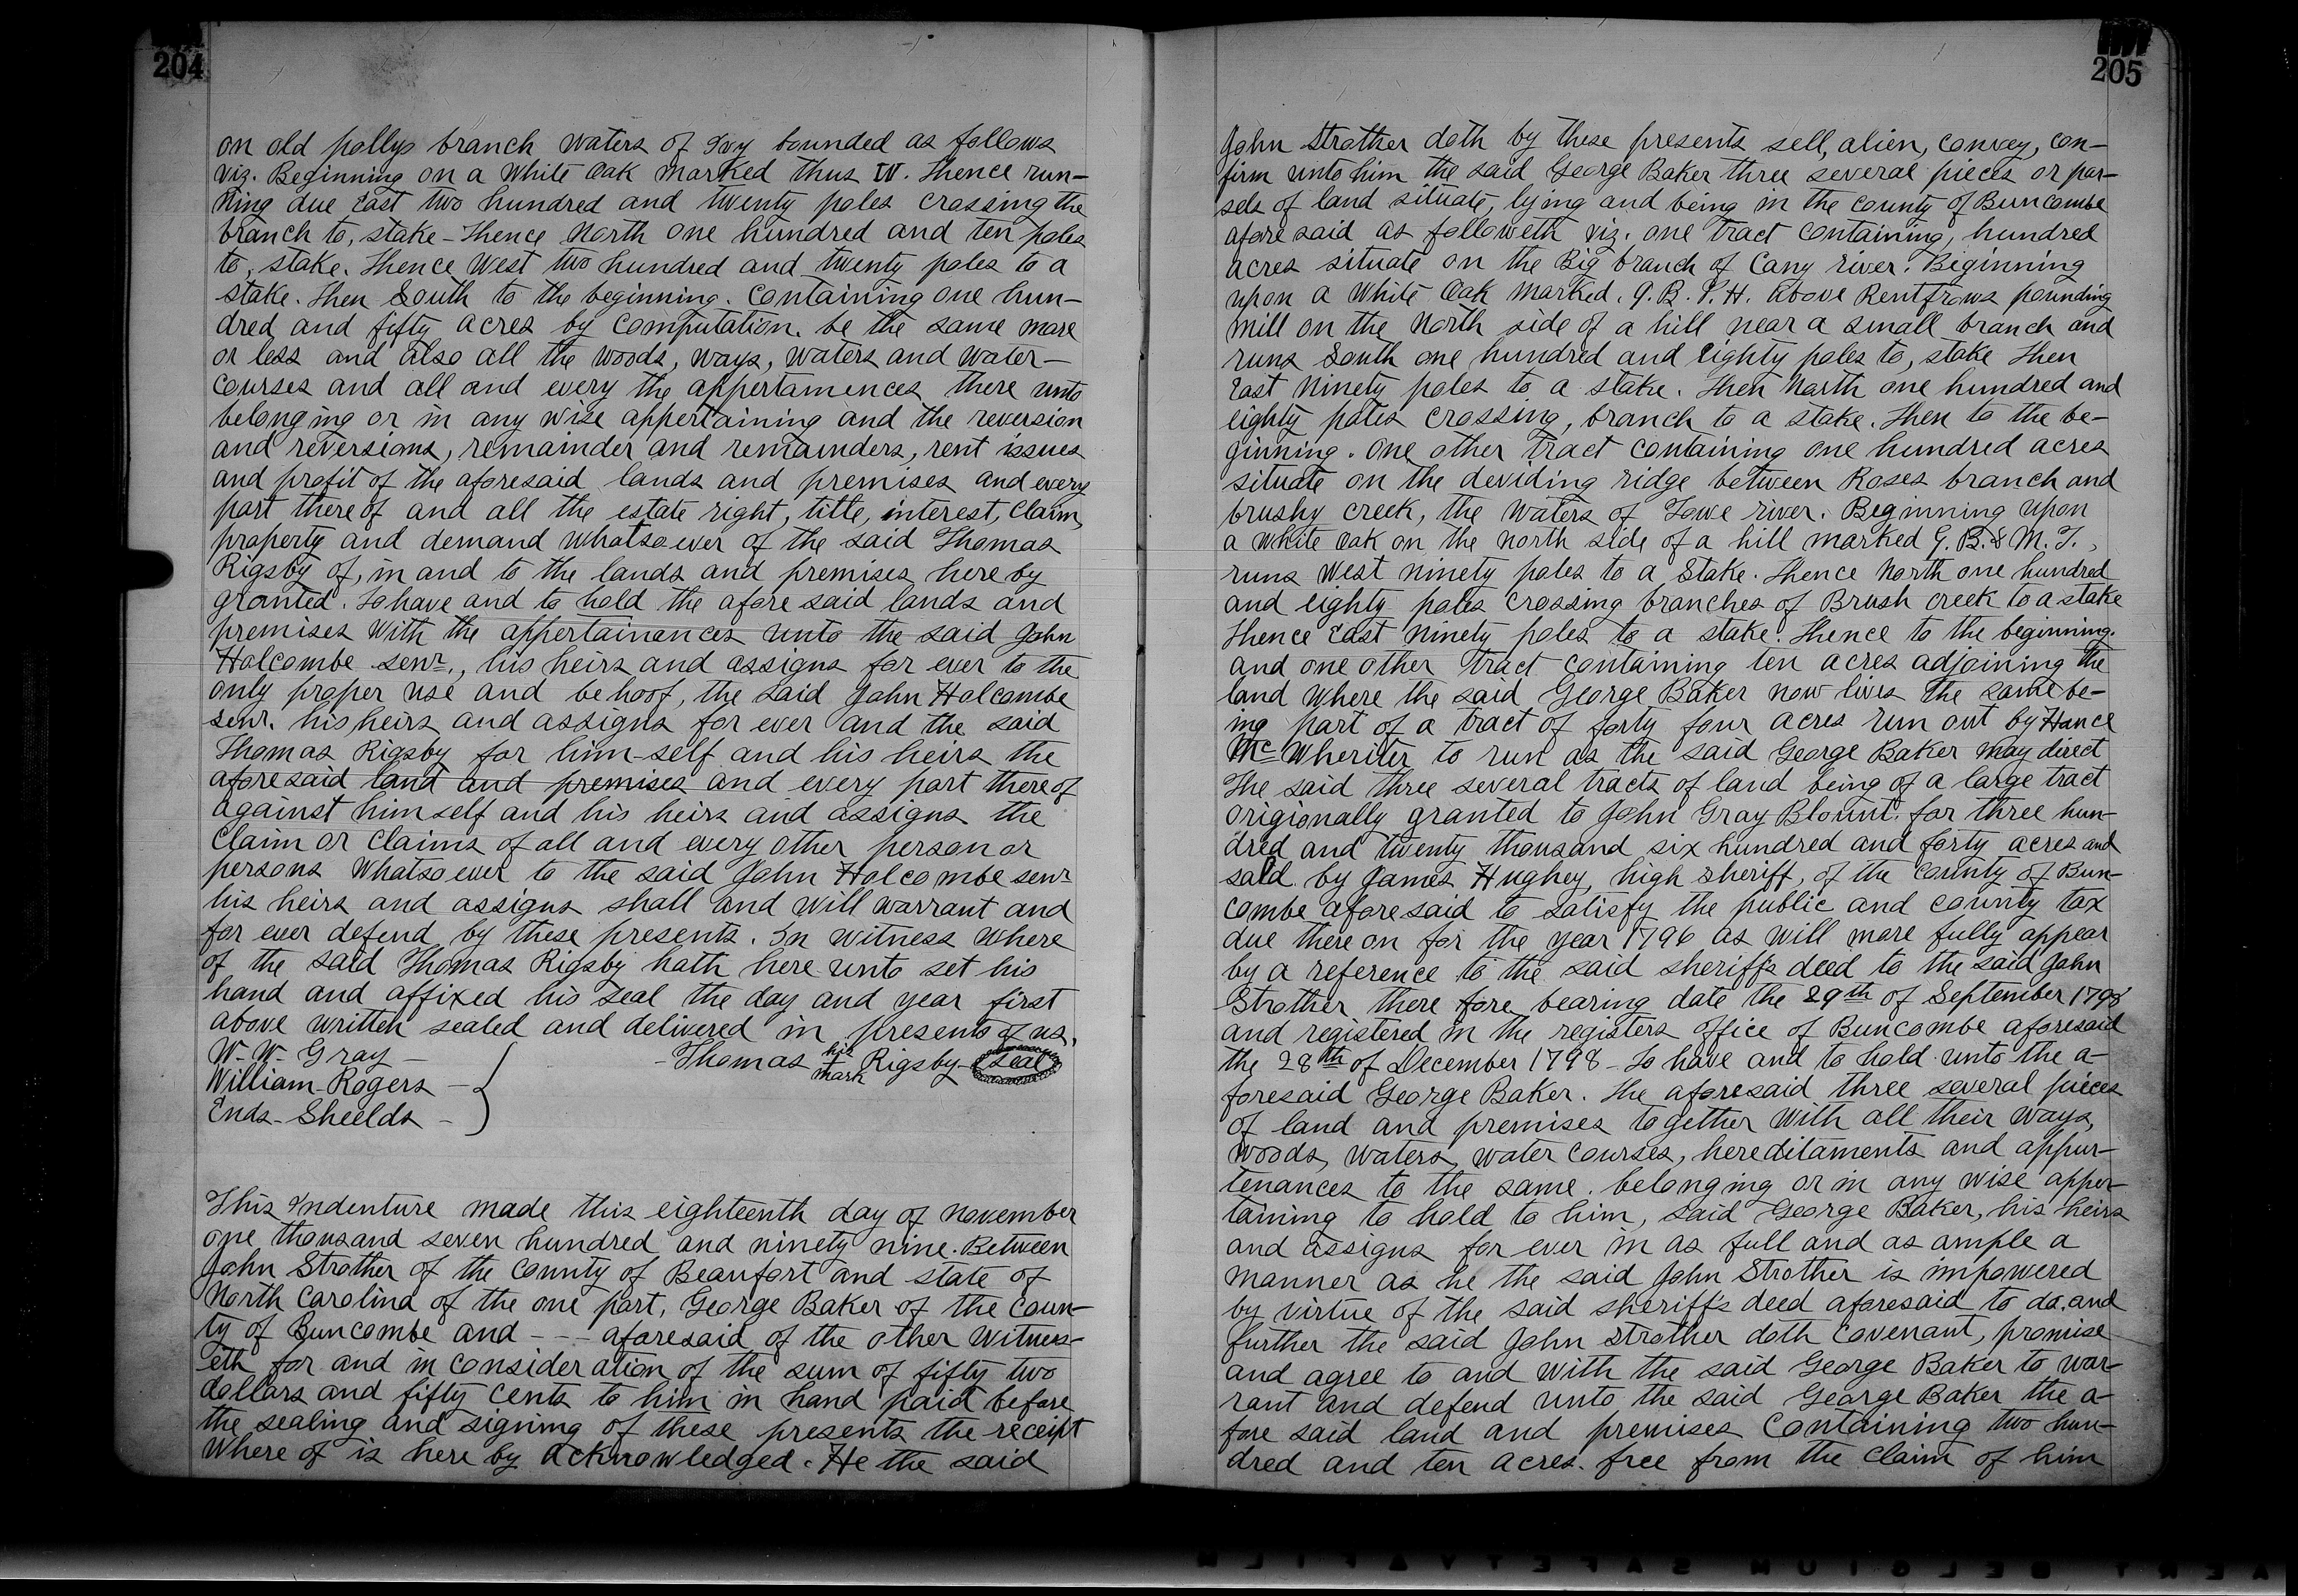 204
on old pollys branch waters of Ivy bounded as follows
viz. Beginning on a White Oak marked thus W. Thence run-
ning due East two hundred and twenty poles crossing the
branch to, stake - Thence North one hundred and ten poles
to, stake. Thence West two hundred and twenty poles to a
stake. Then South to the beginning. Containing one hun-
dred and fifty acres by computation. be the same more
or less and also all the woods, ways, waters and water-
courses and all and every the appertamences there unto
belonging or in any wise appertaining and the reversion
and reversions, remainder and remainders, rent issues
and profit of the aforesaid lands and premises and every
part thereof and all the estate right, title, interest, claim,
property and demand whatsoever of the said Thomas
Rigsby of, in and to the lands and premises here by
granted. To have and to hold the afore said lands and
premises with the appertainances unto the said John
Holcombe senr., his heirs and assigns for ever to the
only proper use and behoof, the said John Holcombe
senr. his heirs and assigns for ever and the said
Thomas Rigsby for him-self and his heirs the
aforesaid land and premises and every part there of
against himself and his heirs and assigns the
claim or claims of all and every other person or
persons whatsoever to the said John Holcombe senr
his heirs and assigns shall and will warrant and
for ever defend by these presents. In witness where
of the said Thomas Rigsby hath here unto set his
hand and affixed his seal the day and year first
above written sealed and delivered in presents of us.
W. W. Gray - Thomas his mark Rigsby (Seal)
William Rogers -
Ends - Sheelds -
This Indenture made this eighteenth day of November
one thousand seven hundred and ninety nine. Between
John Strother of the county of Beaufort and state of
North Carolina of the one part, George Baker of the coun-
ty of Buncombe and - - - aforesaid of the other witness-
eth for and in consideration of the sum of fifty two
dollars and fifty cents to him in hand paid before
the sealing and signing of these presents the receipt
where of is here by acknowledged. He the said
205
John Strother doth by these presents sell, alien, convey, con-
firm unto him the said George Baker three several pieces or par-
sels of land situate, lying and being in the county of Buncombe
afore said as followeth viz. one tract containing, hundred
acres situate on the Big branch of Cany river. Beginning
upon a White Oak marked. G. B. T. H. above Rentfrows pounding
mill on the North side of a hill near a small branch and
runs South one hundred and eighty poles to, stake Then
East ninety poles to a stake. Then North one hundred and
eighty poles crossing, branch to a stake. Then to the be-
ginning. One other tract containing one hundred acres
situate on the deviding ridge between Roses branch and
brushy creek, the waters of Towe river. Beginning upon
a White oak on the north side of a hill marked G. B. & M. T.,
runs West ninety poles to a Stake. Thence North one hundred
and eighty poles crossing branches of Brush creek to a stake
Thence East ninety poles to a stake. Thence to the beginning.
and one other tract containing ten acres adjoining the
land where the said George Baker now lives the same be-
ing part of a tract of forty four acres run out by Hance
Mc Wheriter to run as the said George Baker may direct
The said three several tracts of land being of a large tract
origionally granted to John Gray Blount. for three hun-
dred and twenty thousand six hundred and forty acres and
sold by James Hughey, high sheriff, of the county of Bun-
combe aforesaid to satisfy the public and county tax
due there on for the year 1796 as will more fully appear
by a reference to the said sheriffs deed to the said John
Strother there fore bearing date the 29th of September 1798
and registered in the registers office of Buncombe aforesaid
the 28th of December 1798 - To have and to hold unto the a-
foresaid George Baker. The aforesaid three several pieces
of land and premises together with all their ways,
woods, waters, water courses, hereditaments and appur-
tenances to the same. belonging or in any wise apper-
taining to hold to him, said George Baker, his heirs
and assigns for ever in as full and as ample a
manner as he the said John Strother is impowered
by virtue of the said sheriff's deed aforesaid to do. and
further the said John Strother doth covenant, promise
and agree to and with the said George Baker to war-
rant and defend unto the said George Baker the a-
fore said land and premises containing two hun-
dred and ten acres. free from the claim of him